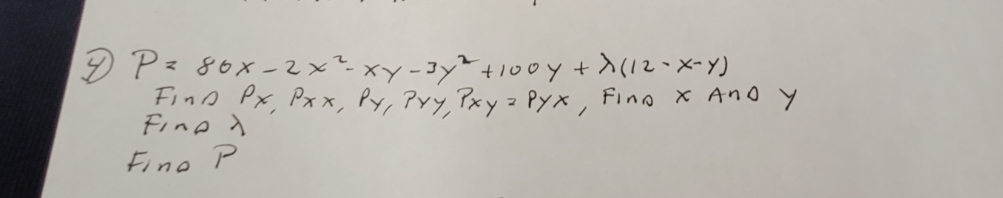 4) P = 80x - 2x² - xy - 3y² + 100y + λ(12 - x - y)
Find Px, Pxx, Py, Pyy, Pxy = Pyx, Find x And y
Find λ
Find P